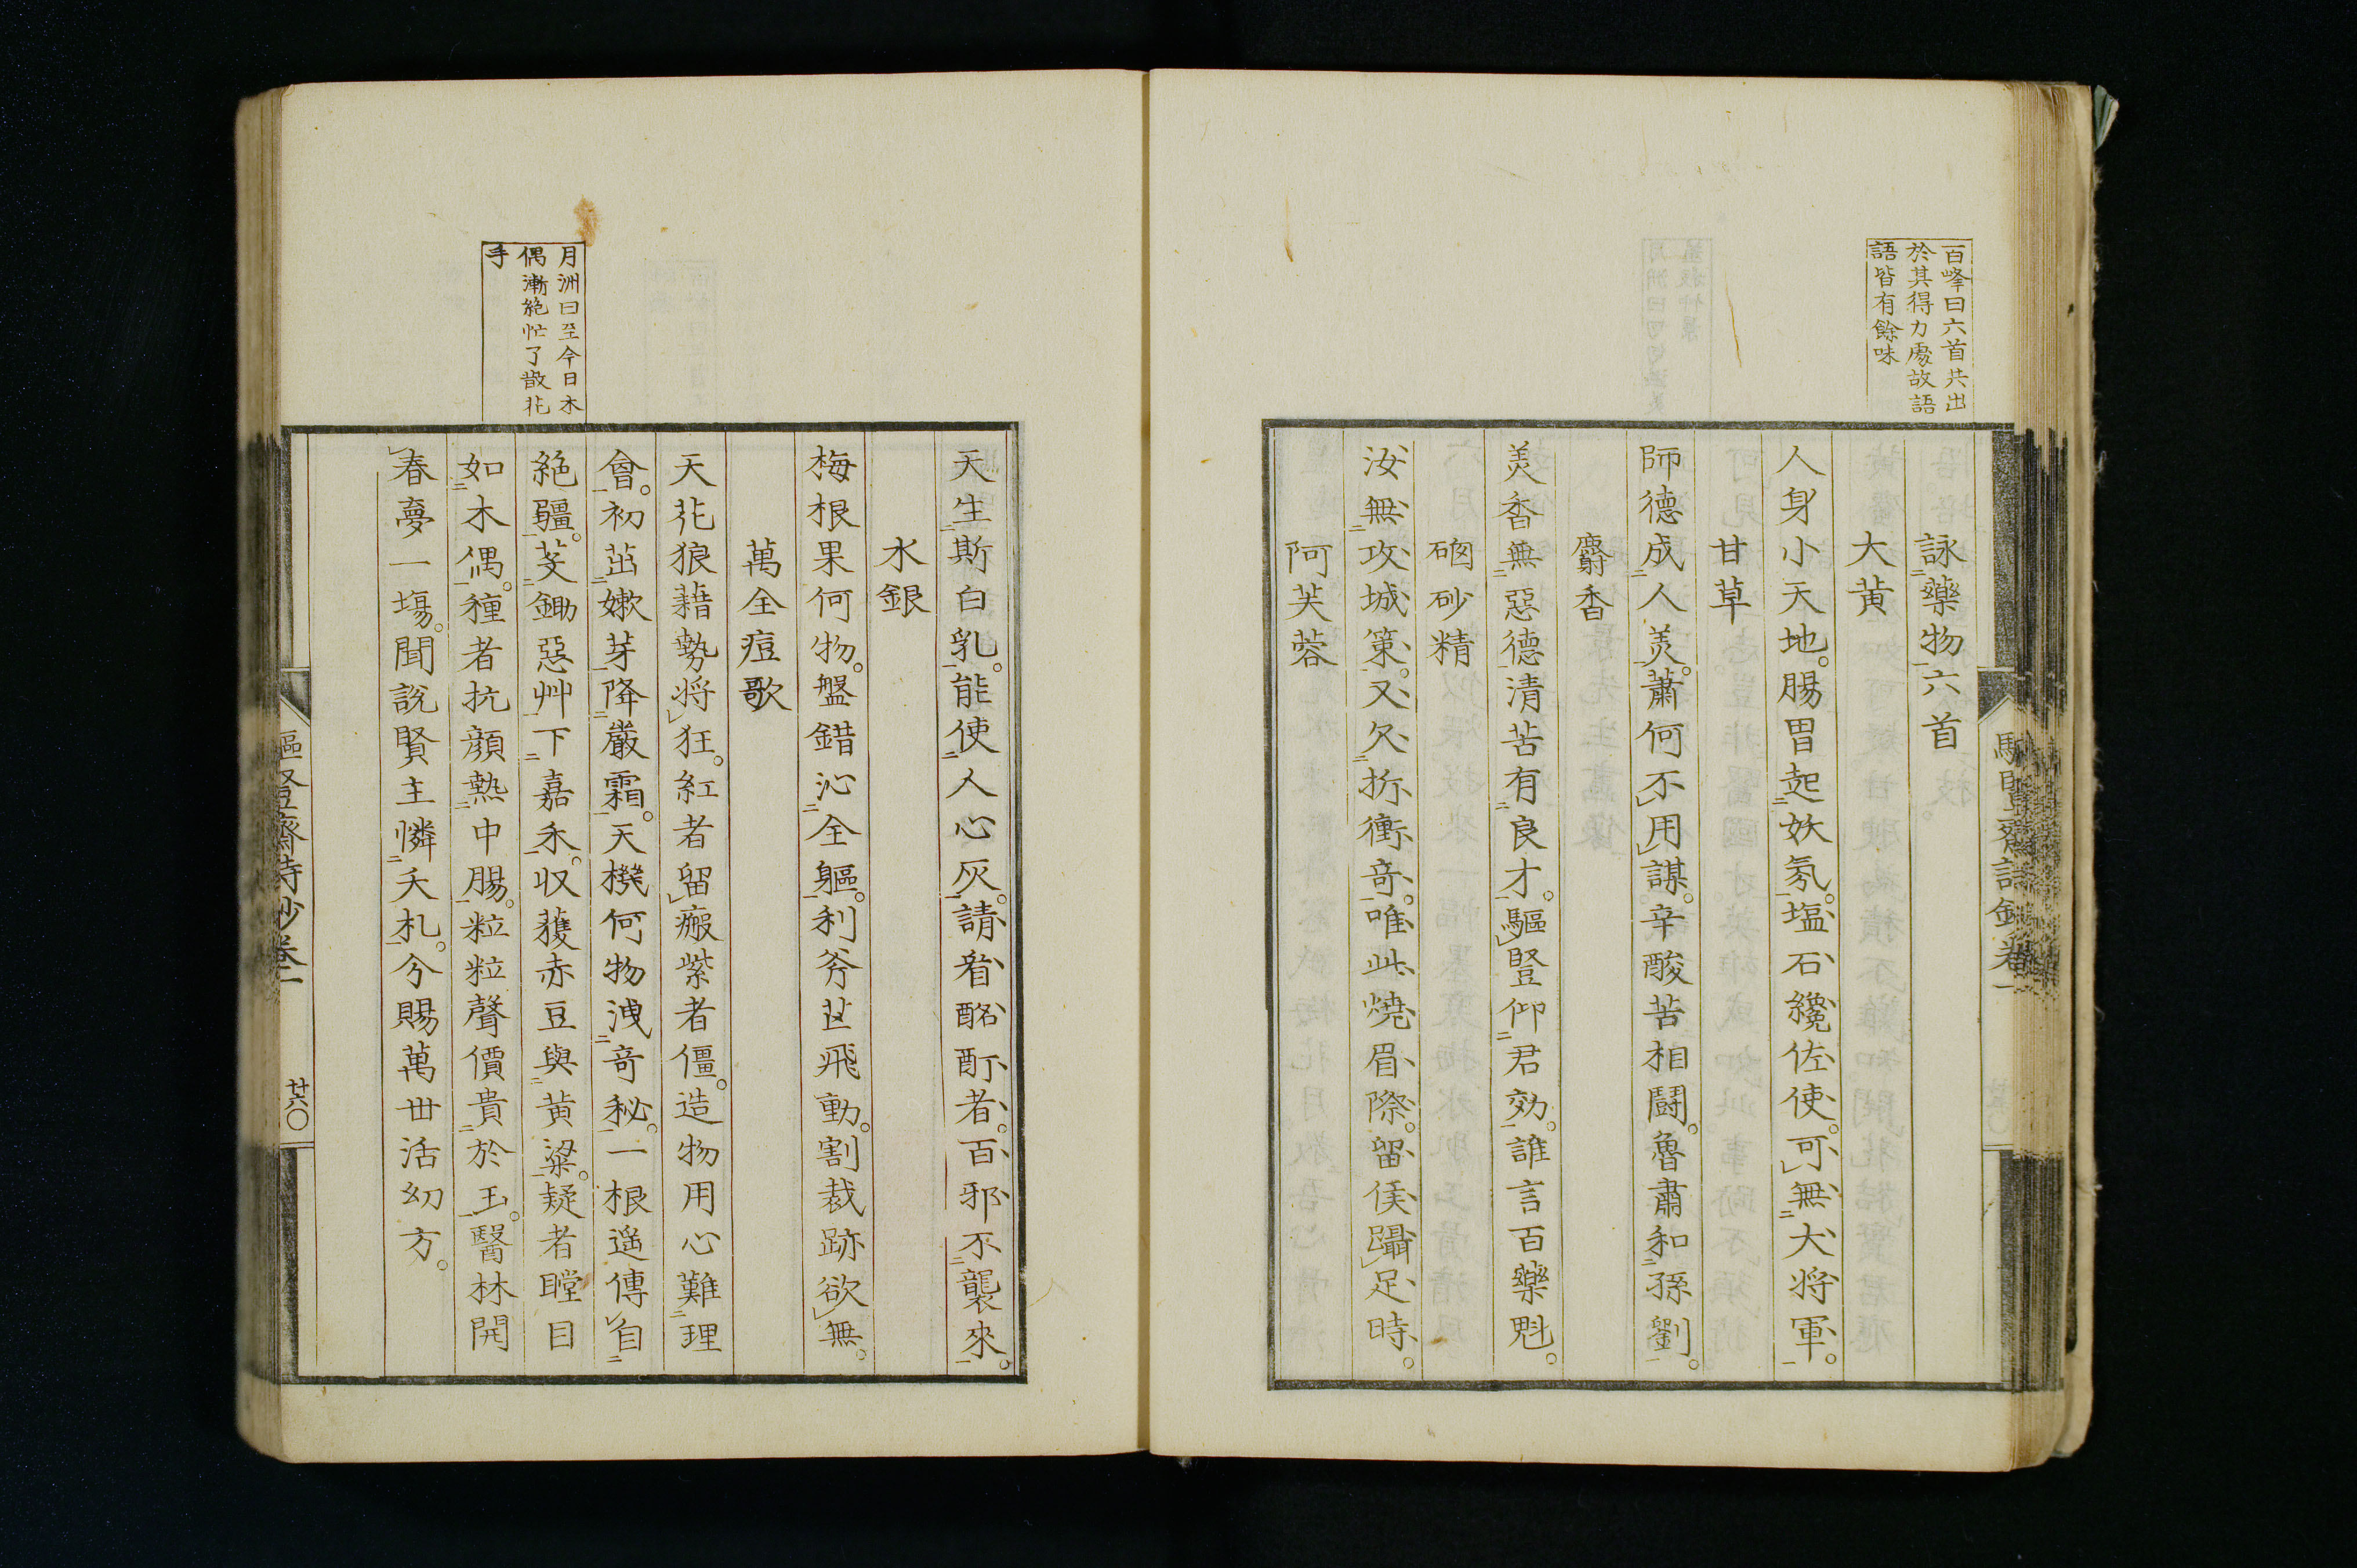 百峰曰六首共出
於其得力處故語
語皆有餘味
詠藥物六首
大黃
人身小天地。腸胃起妖氛。塩石纔佐使。可無大将軍。
甘草
師德成人羙。蕭何不用謀。辛酸苦相鬪。魯肅和孫劉。
麝香
羙香無惡德清苦有良才。驅豎仰君効。誰言百藥魁。
硇砂精
汝無攻城策。又欠折衝奇。唯此燒眉際。留侯躡足時。
阿芙蓉
天生斯白乳。能使人心灰。請看酩酊者。百邪不襲來。
水銀
梅根果何物。盤錯沁全軀。利斧苙飛動。割裁跡欲無。
月洲曰至今日木
偶漸絶忙了散花
手
萬全痘歌
天花狼藉勢将狂。紅者留瘢紫者僵。造物用心難理
會。初茁嫰芽降嚴霜。天機何物洩奇秘。一根遥傳自
絶疆。芟鋤惡艸下嘉禾。収蔊赤豆與黃粱。疑者瞠目
如木偶。種者抗顔熱中腸。粒粒聲價貴於玉。醫林開
春夢一塲。聞說賢主憐夭札。分賜萬世活幼方。
驅豎齋詩鈔卷一
廿六